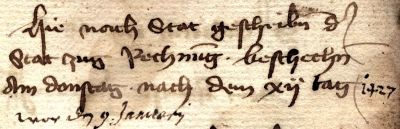 Hie nach Stat geschribn d
Stat zug Rechnūg beschechn
Am donstag nach dem xij tag 1427
wor den 9. January